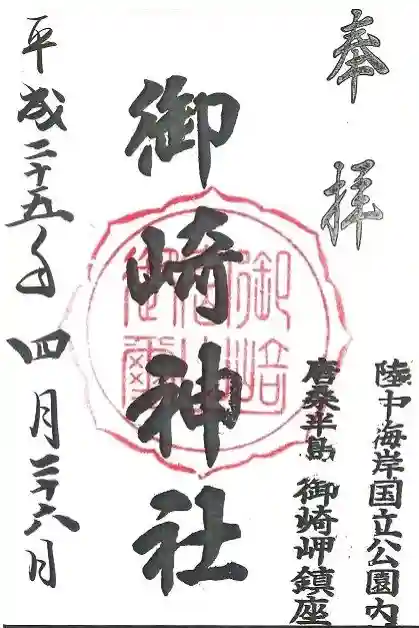 奉拝
陸中海岸国立公園内
唐桑半島 御崎岬鎮座
御崎神社
平成二十五年 四月二十六日